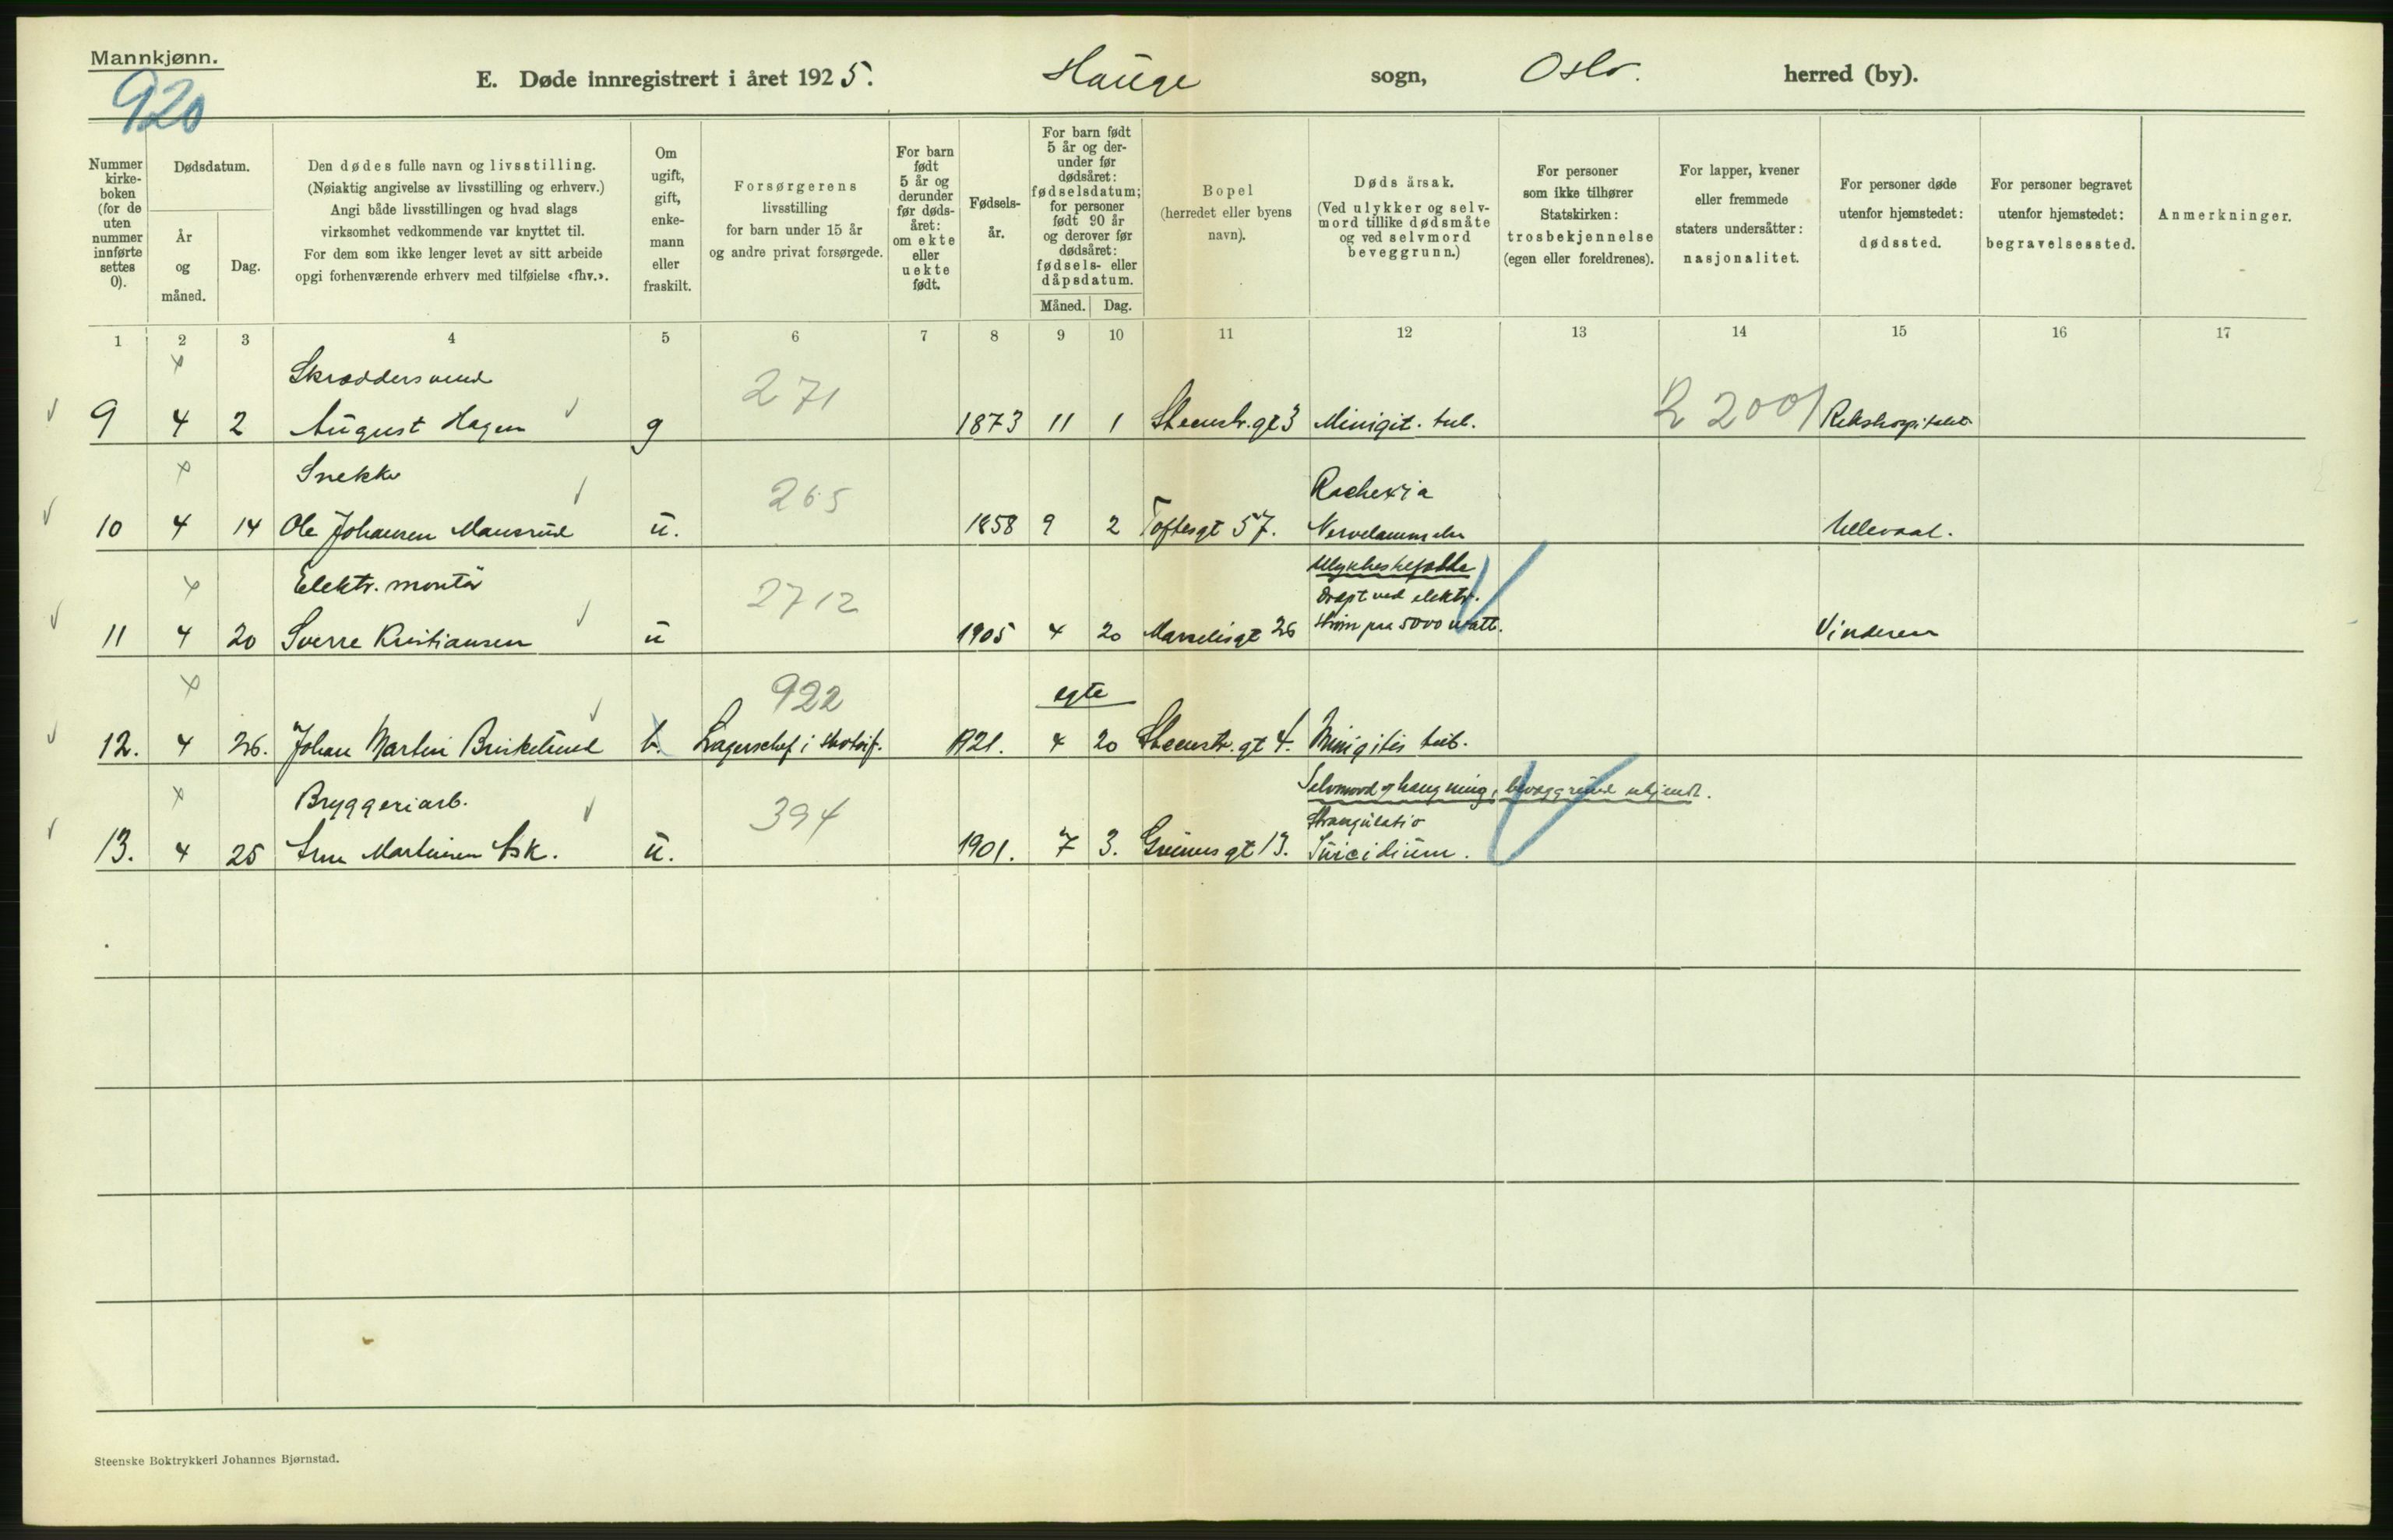 Mannkjønn.
920
E. Døde innregistrert i året 1925. Hauge sogn, Oslo. herred (by).
Nummer
kirke-
boken
(for de
uten
nummer
innførte
settes
0).
Dødsdatum.
År
og
måned.
Dag.
Den dødes fulle navn og livsstilling.
(Nøiaktig angivelse av livsstilling og erhverv.)
Angi både livsstillingen og hvad slags
virksomhet vedkommende var knyttet til.
For dem som ikke lenger levet av sitt arbeide
opgi forhenværende erhverv med tilføielse «fhv.».
Om
ugift,
gift,
enke-
mann
eller
fraskilt.
Forsørgerens
livsstilling
for barn under 15 år
og andre privat forsørgede.
For barn
født
5 år og
derunder
før døds-
året:
om ekte
eller
uekte
født.
Fødsels-
år.
For barn født
5 år og der-
under før
dødsåret:
fødselsdatum;
for personer
født 90 år
og derover før
dødsåret:
fødsels- eller
dåpsdatum.
Måned. Dag.
Bopel
(herredet eller byens
navn).
Dødsårsak.
(Ved ulykker og selv-
mord tillike dødsmåte
og ved selvmord
beveggrunn.)
For personer
som ikke tilhører
Statskirken:
trosbekjennelse
(egen eller foreldrenes).
For lapper, kvener
eller fremmede
staters undersåtter:
nasjonalitet.
For personer døde
utenfor hjemstedet:
dødssted.
For personer begravet
utenfor hjemstedet:
begravelsessted.
Anmerkninger.
1 2 3 4 5 6 7 8 9 10 11 12 13 14 15 16 17
Skræddersvend
271
9 4 2 August Hagen g 1873 11 1 Steenstr. gt 3 Minigit. tub. R 2001 Rikshospitalet
Snekker
265
Kachexia
10 4 14 Ole Johansen Mausrud u. 1858 9 2 Toftesgt 57. Ullevaal.
Elektr. montør
2712
Ulykkestilfælde
Dræpt ved elektr.
11 4 20 Sverre Kristiansen u 1905 4 20 Marselisgt 26 Strøm paa 5000 watt. Vinderen
922
egte
12. 4 26. Johan Martin Lagerschef i 1921. 4 20 Steenstr. gt 4. Minigitis tub.
Bryggeriarb.
394
Selvmord v hængning, bevæggrund ukjendt.
Strangulatio
13. 4 25 Arne Martinsen Ask. u. 1901. 7 3. gt 13. Suicidium.
Steenske Boktrykkeri Johannes Bjørnstad.